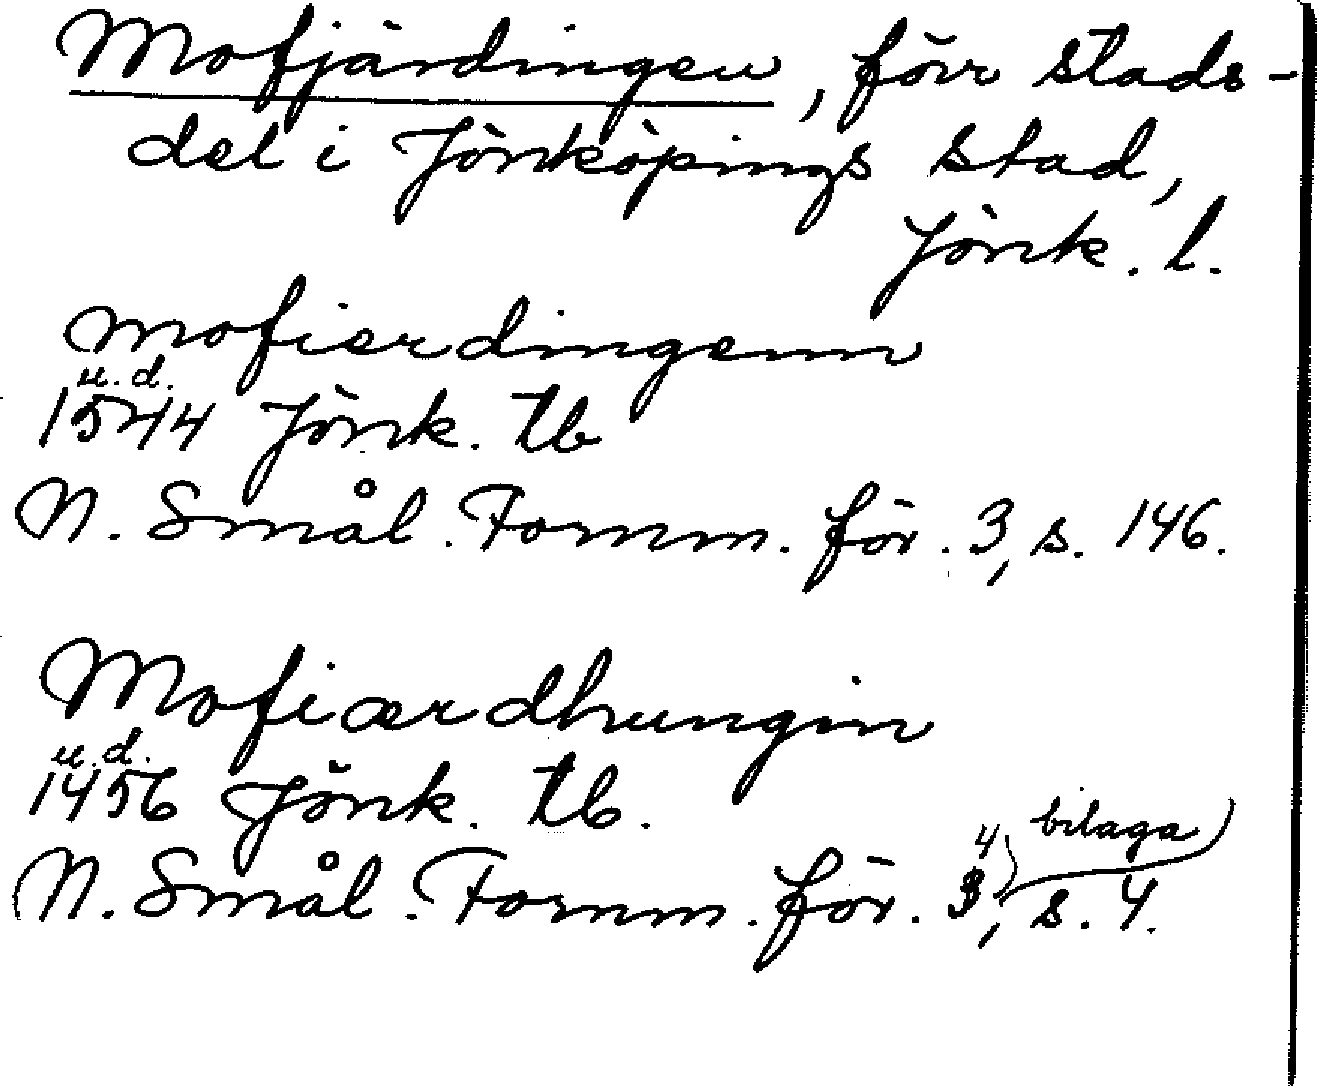 Mofjärdingen, förr stads-
del i Jönköpings stad,
Jönk. l.
mofierdingenn
u. d.
1544 Jönk. tb
N. Smål. Fornm. för. 3, s. 146.
Mofiærdhungin
u. d.
1456 Jönk. tb.
4, bilaga
N. Smål. Fornm. för. 3, s. 4.